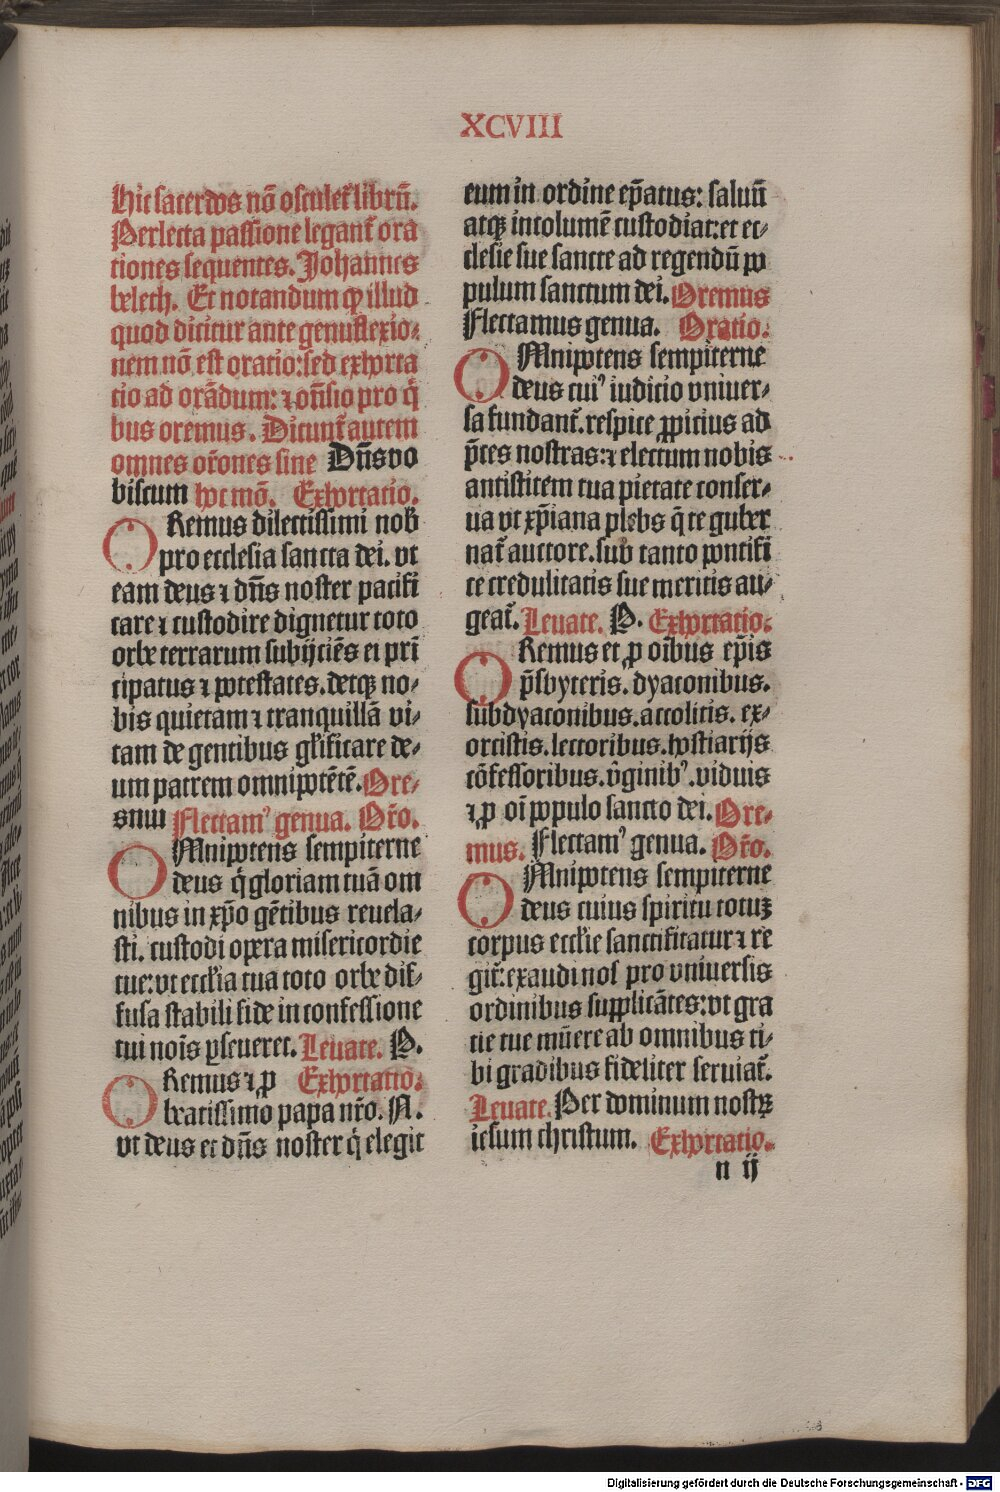 XCVIII
Hic sacerdos nõ osculet᷑ librũ.
Perlecta passione legant᷑ ora
tiones sequentes. Johannes
belech. Et notandum ꝙ illud
quod dicitur ante genuflexio⸗
nem nõ est oratio: sed exhorta
tio ad orãdum: ⁊ oñsio pro q̃
bus oremus. Dicunt᷑ autem
omnes or̃ones sine Dñs vo
biscum hoc mõ. Exhortatio.
ORemus dilectissimi nob̃
pro ecclesia sancta dei. vt
eam deus ⁊ dñs noster pacifi
care ⁊ custodire dignetur toto
orbe terrarum subijciẽs ei pri̅
cipatus ⁊ potestates. detqꝫ no⸗
bis quietam ⁊ tranquillã vi⸗
tam de gentibus gl̃ificare de⸗
um patrem omnipotẽtẽ. Ore⸗
mus Flectamꝰ genua. Or̃o.
OMnipotens sempiterne
deus q̃ gloriam tuã om
nibus in xp̃o gẽtibus reuela⸗
sti. custodi opera misericordie
tue: vt eccl̃ia tua toto orbe dif⸗
fusa stabili fide in confessione
tui noĩs ꝑseueret. Leuate. P.
ORemus ⁊ ꝓ Exhortatio.
beatissimo papa nr̃o. N.
vt deus et dñs noster q̃ elegit
eum in ordine ep̃atus: saluũ
atqꝫ incolumẽ custodiat: et ec⸗
clesie sue sancte ad regendũ po
pulum sanctum dei. Oremus
Flectamus genua. Oratio.
OMnipotens sempiterne
deus cuiꝰ iudicio vniuer⸗
sa fundant᷑. respice ꝓpicius ad
p̃ces nostras: ⁊ electum nobis
antistitem tua pietate conser⸗
ua vt xp̃iana plebs q̃ te guber
nat᷑ auctore. sub tanto pontifi
ce credulitatis sue meritis au⸗
geat᷑. Leuate. P. Exhortatio.
ORemus et ꝓ oĩbus ep̃is
p̃sbyteris. dyaconibus.
subdyaconibus. accolitis. ex⸗
orcistis. lectoribus. hostiarijs
cõfessoribus. v̾ginibꝰ. viduis
⁊ ꝓ oĩ populo sancto dei. Ore⸗
mus. Flectamꝰ genua. Or̃o.
OMnipotens sempiterne
deus cuius spiritu totuꝫ
corpus eccl̃ie sanctificatur ⁊ re
git᷑: exaudi nos pro vniuersis
ordinibus supplicãtes: vt gra
tie tue mũere ab omnibus ti⸗
bi gradibus fideliter seruiat᷑.
Leuate. Per dominum nostꝝ
iesum christum. Exhortatio.
n ij
Digitalisierung gefördert durch die Deutsche Forschungsgemeinschaft - DFG